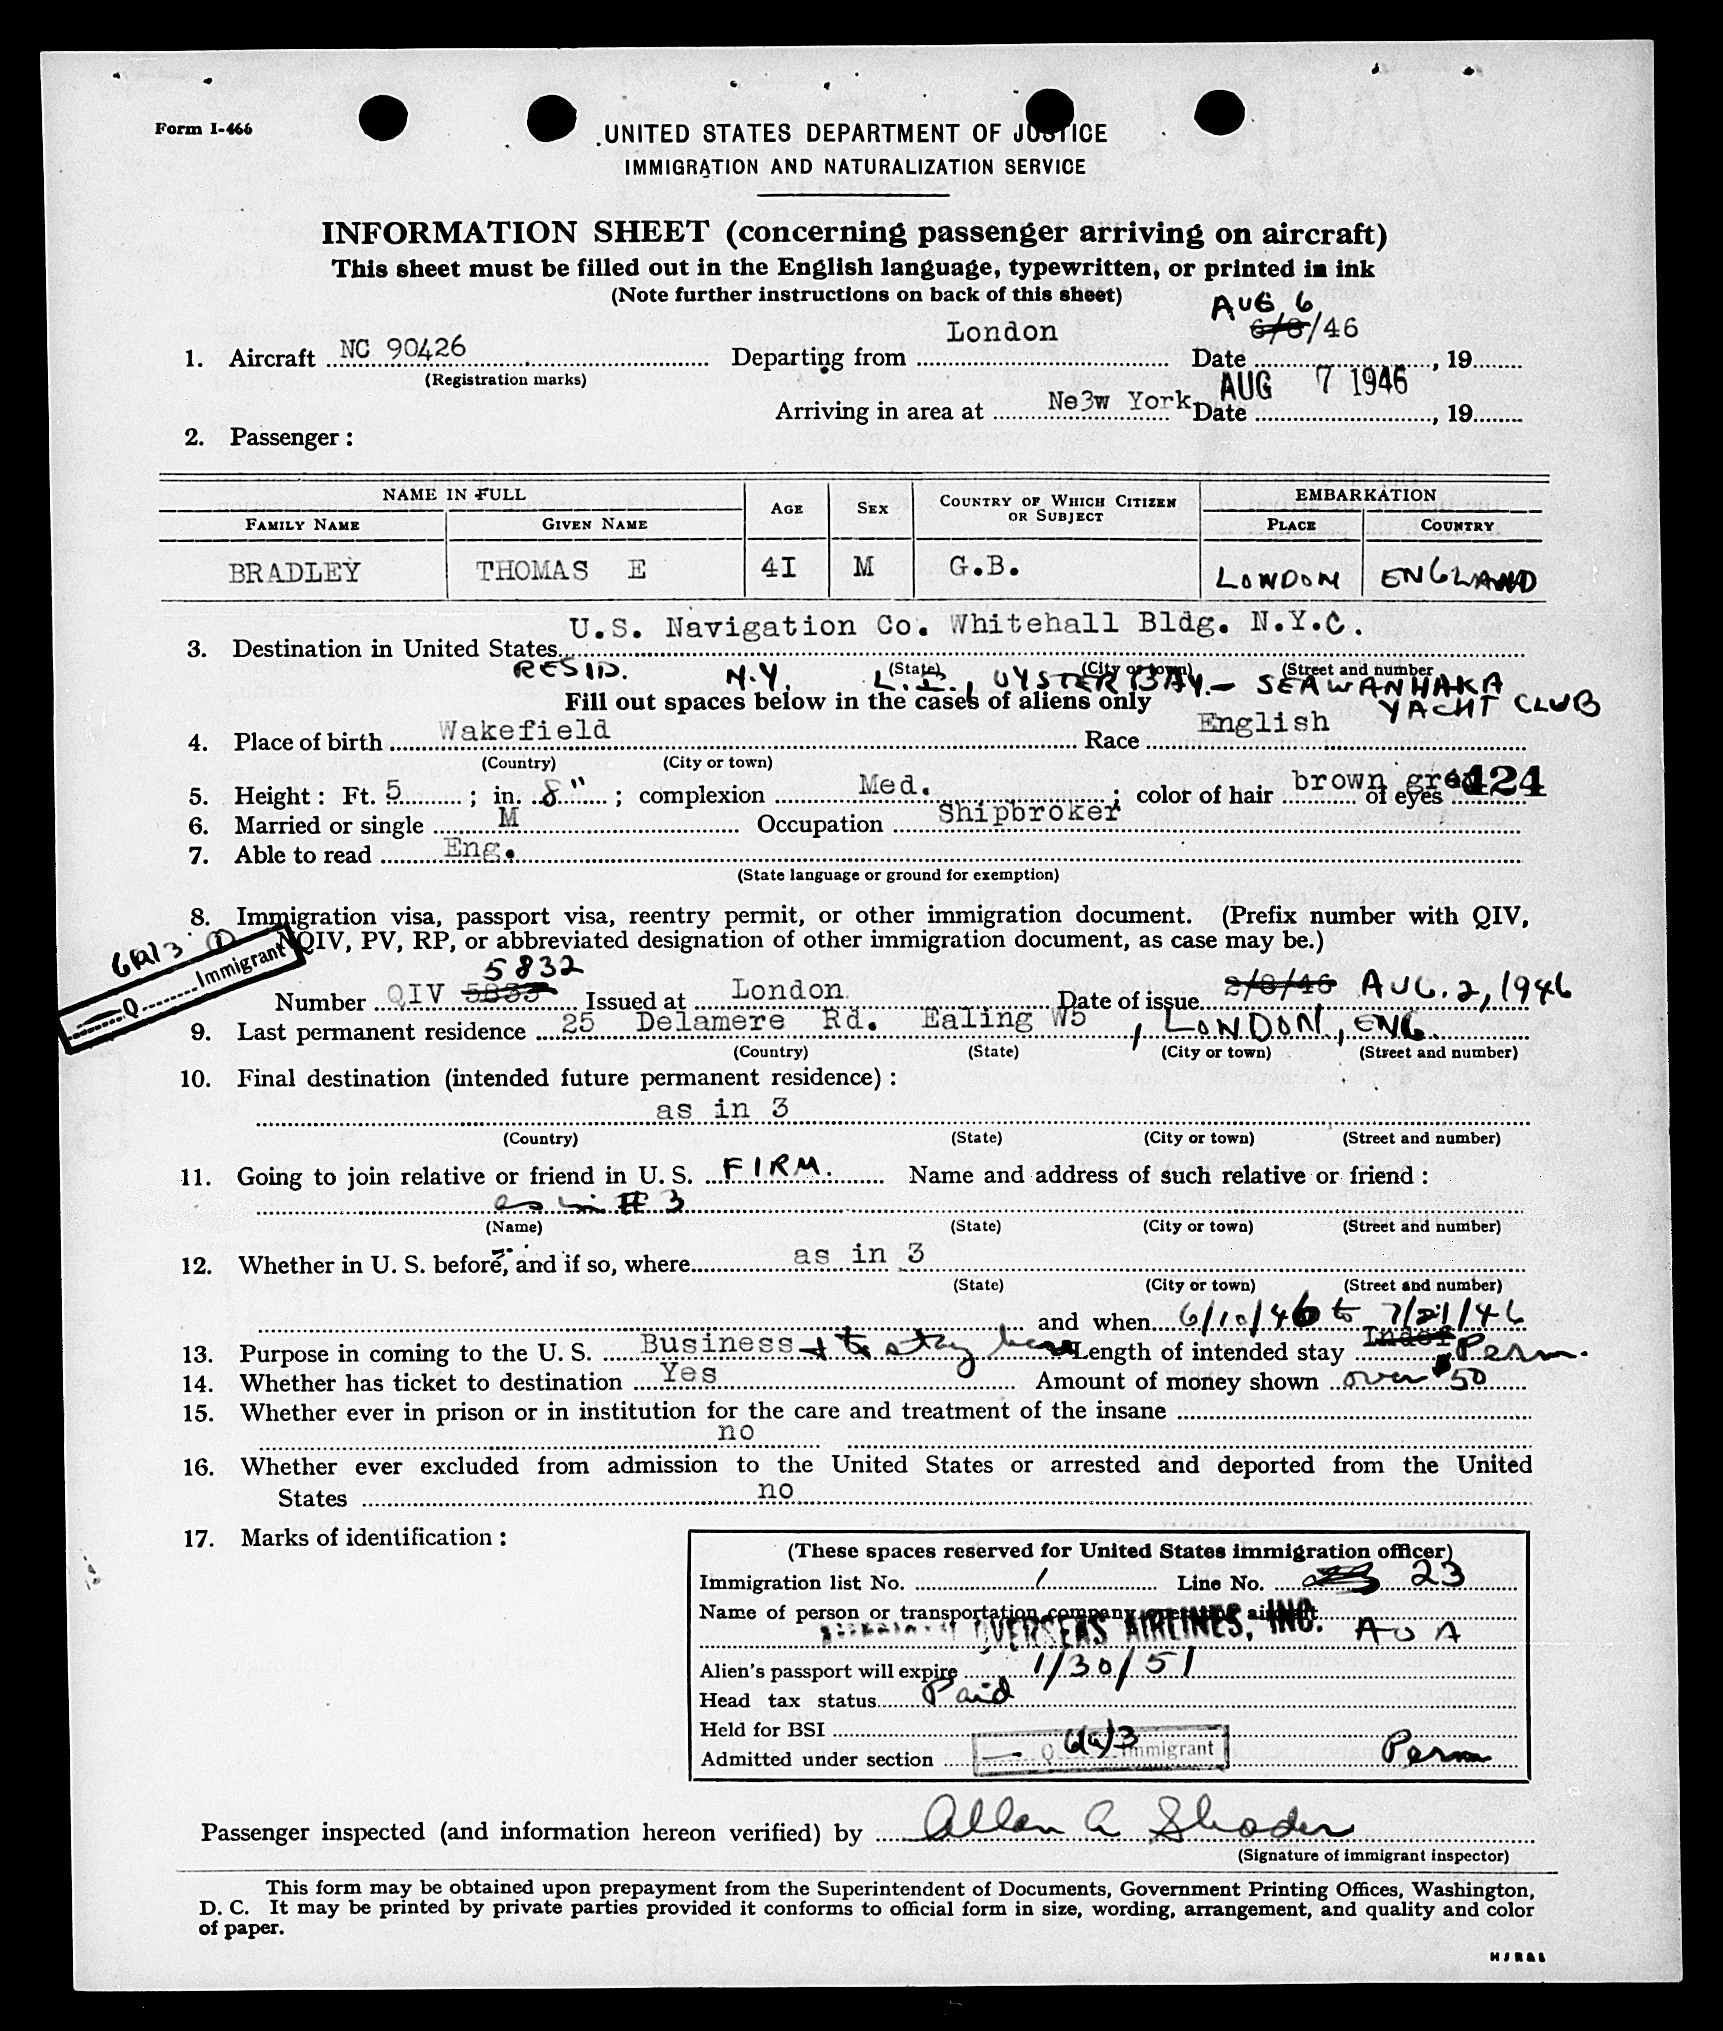 Form I-466
UNITED STATES DEPARTMENT OF JUSTICE
IMMIGRATION AND NATURALIZATION SERVICE
INFORMATION SHEET (concerning passenger arriving on aircraft)
This sheet must be filled out in the English language, typewritten, or printed in ink
(Note further instructions on back of this sheet)
AUG 6
1. Aircraft NC 90426 Departing from London Date 6/8/46, 19
(Registration marks)
Arriving in area at Ne3w York Date AUG 7 1946, 19
2. Passenger:
NAME IN FULL AGE SEX COUNTRY OF WHICH CITIZEN OR SUBJECT EMBARKATION
FAMILY NAME GIVEN NAME PLACE COUNTRY
BRADLEY THOMAS E 4I M G.B. LONDON ENGLAND
3. Destination in United States U.S. Navigation Co. Whitehall Bldg. N.Y.C.
(State) (City or town) (Street and number
RESID. N.Y. L.I., OYSTER BAY. - SEAWANHAKA
YACHT CLUB
Fill out spaces below in the cases of aliens only
4. Place of birth Wakefield Race English
(Country) (City or town)
5. Height: Ft. 5; in. 8"; complexion Med.; color of hair brown of eyes 424
6. Married or single M Occupation Shipbroker
7. Able to read Eng.
(State language or ground for exemption)
8. Immigration visa, passport visa, reentry permit, or other immigration document. (Prefix number with QIV,
NQIV, PV, RP, or abbreviated designation of other immigration document, as case may be.)
6(a)3
Q Immigrant
5832
Number QIV 5833 Issued at London Date of issue 2/8/46 AUG. 2, 1946
9. Last permanent residence 25 Delamere Rd. Ealing W5, LONDON, ENG.
(Country) (State) (City or town) (Street and number)
10. Final destination (intended future permanent residence):
as in 3
(Country) (State) (City or town) (Street and number)
11. Going to join relative or friend in U. S. FIRM. Name and address of such relative or friend:
as in # 3
(Name) (State) (City or town) (Street and number)
12. Whether in U. S. before, and if so, where as in 3
(State) (City or town) (Street and number)
and when 6/10/46 to 7/21/46
13. Purpose in coming to the U. S. Business + to stay here Length of intended stay Indef Perm.
14. Whether has ticket to destination Yes Amount of money shown over $50
15. Whether ever in prison or in institution for the care and treatment of the insane
no
16. Whether ever excluded from admission to the United States or arrested and deported from the United
States no
17. Marks of identification:
(These spaces reserved for United States immigration officer)
Immigration list No. 1 Line No. 23
Name of person or transportation company operating aircraft
OVERSEAS AIRLINES, INC. AOA
Alien's passport will expire 1/30/51
Head tax status Paid
Held for BSI
Admitted under section Q 6(a)3 Immigrant Perm
Passenger inspected (and information hereon verified) by Allen A Shoder
(Signature of immigrant inspector)
This form may be obtained upon prepayment from the Superintendent of Documents, Government Printing Offices, Washington,
D. C. It may be printed by private parties provided it conforms to official form in size, wording, arrangement, and quality and color
of paper.